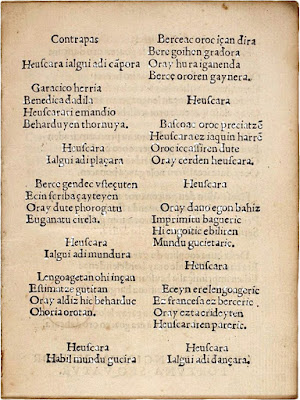 Contrapas
Heuscara ialgui adi cãpora
Garacico herria
Benedica dadila
Heuscarari emandio
Beharduyen thornuya.
Heuscara
Ialgui adi plaçara
Berce gendec vsteçuten
Ecin scriba çayteyen
Oray dute phorogatu
Euganatu cirela.
Heuscara
Ialgui adi mundura
Lengoagetan ohi inçan
Estimatze gutitan
Oray aldiz hic behardue
Ohoria orotan.
Heuscara
Habil mundu gucira
Berceac oroc içan dira
Bere goihen gradora
Oray hura iganenda
Berce ororen gaynera.
Heuscara
Bascoac oroc preciatzẽ
Heuscara ez iaquin harrẽ
Oroc iccassiren dute
Oray cerden heuscara.
Heuscara
Oray dano egon bahiz
Imprimitu bagueric
Hi engoitic ebiliren
Mundu gucietaric.
Heuscara
Eceyn ere lengoageric
Ez francesa ez berceric
Oray ezta erideyten
Heuscararen pareric.
Heuscara
Ialgui adi dançara.